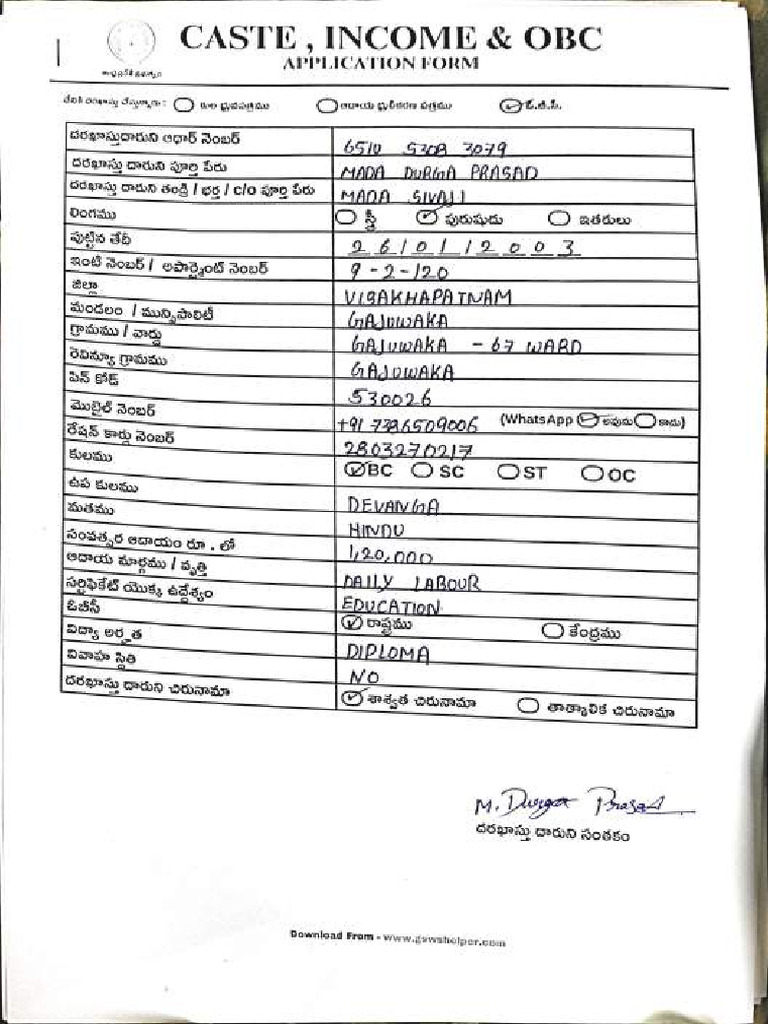 CASTE , INCOME & OBC
APPLICATION FORM
కుల ధ్రువపత్రము ఆదాయ ధ్రువీకరణ పత్రము ఓ.బి.సి.
దరఖాస్తుదారుని ఆధార్ నెంబర్ 6510 5308 3079
దరఖాస్తు దారుని పూర్తి పేరు MADA DURGA PRASAD
దరఖాస్తు దారుని తండ్రి / భర్త / c/o పూర్తి పేరు MADA SIVAJI
లింగము స్త్రీ పురుషుడు ఇతరులు
పుట్టిన తేదీ 26/01/2003
ఇంటి నెంబర్ / అపార్ట్మెంట్ నెంబర్ 9-2-120
జిల్లా VISAKHAPATNAM
మండలం / మున్సిపాలిటీ GAJUWAKA
గ్రామము / వార్డు GAJUWAKA - 67 WARD
రెవిన్యూ గ్రామము GAJUWAKA
పిన్ కోడ్ 530026
మొబైల్ నెంబర్ +91 7386509006 (WhatsApp అవును కాదు)
రేషన్ కార్డు నెంబర్ 2803270217
కులము BC SC ST OC
ఉప కులము DEVANGA
మతము HINDU
సంవత్సర ఆదాయం రూ . లో 1,20,000
ఆదాయ మార్గము / వృత్తి DAILY LABOUR
సర్టిఫికేట్ యొక్క ఉద్దేశ్యం EDUCATION
ఓబీసీ రాష్ట్రము కేంద్రము
విద్యా అర్హత DIPLOMA
వివాహ స్థితి NO
దరఖాస్తు దారుని చిరునామా శాశ్వత చిరునామా తాత్కాలిక చిరునామా
M. Durga Prasad
దరఖాస్తు దారుని సంతకం
Download From - www.gswshelper.com